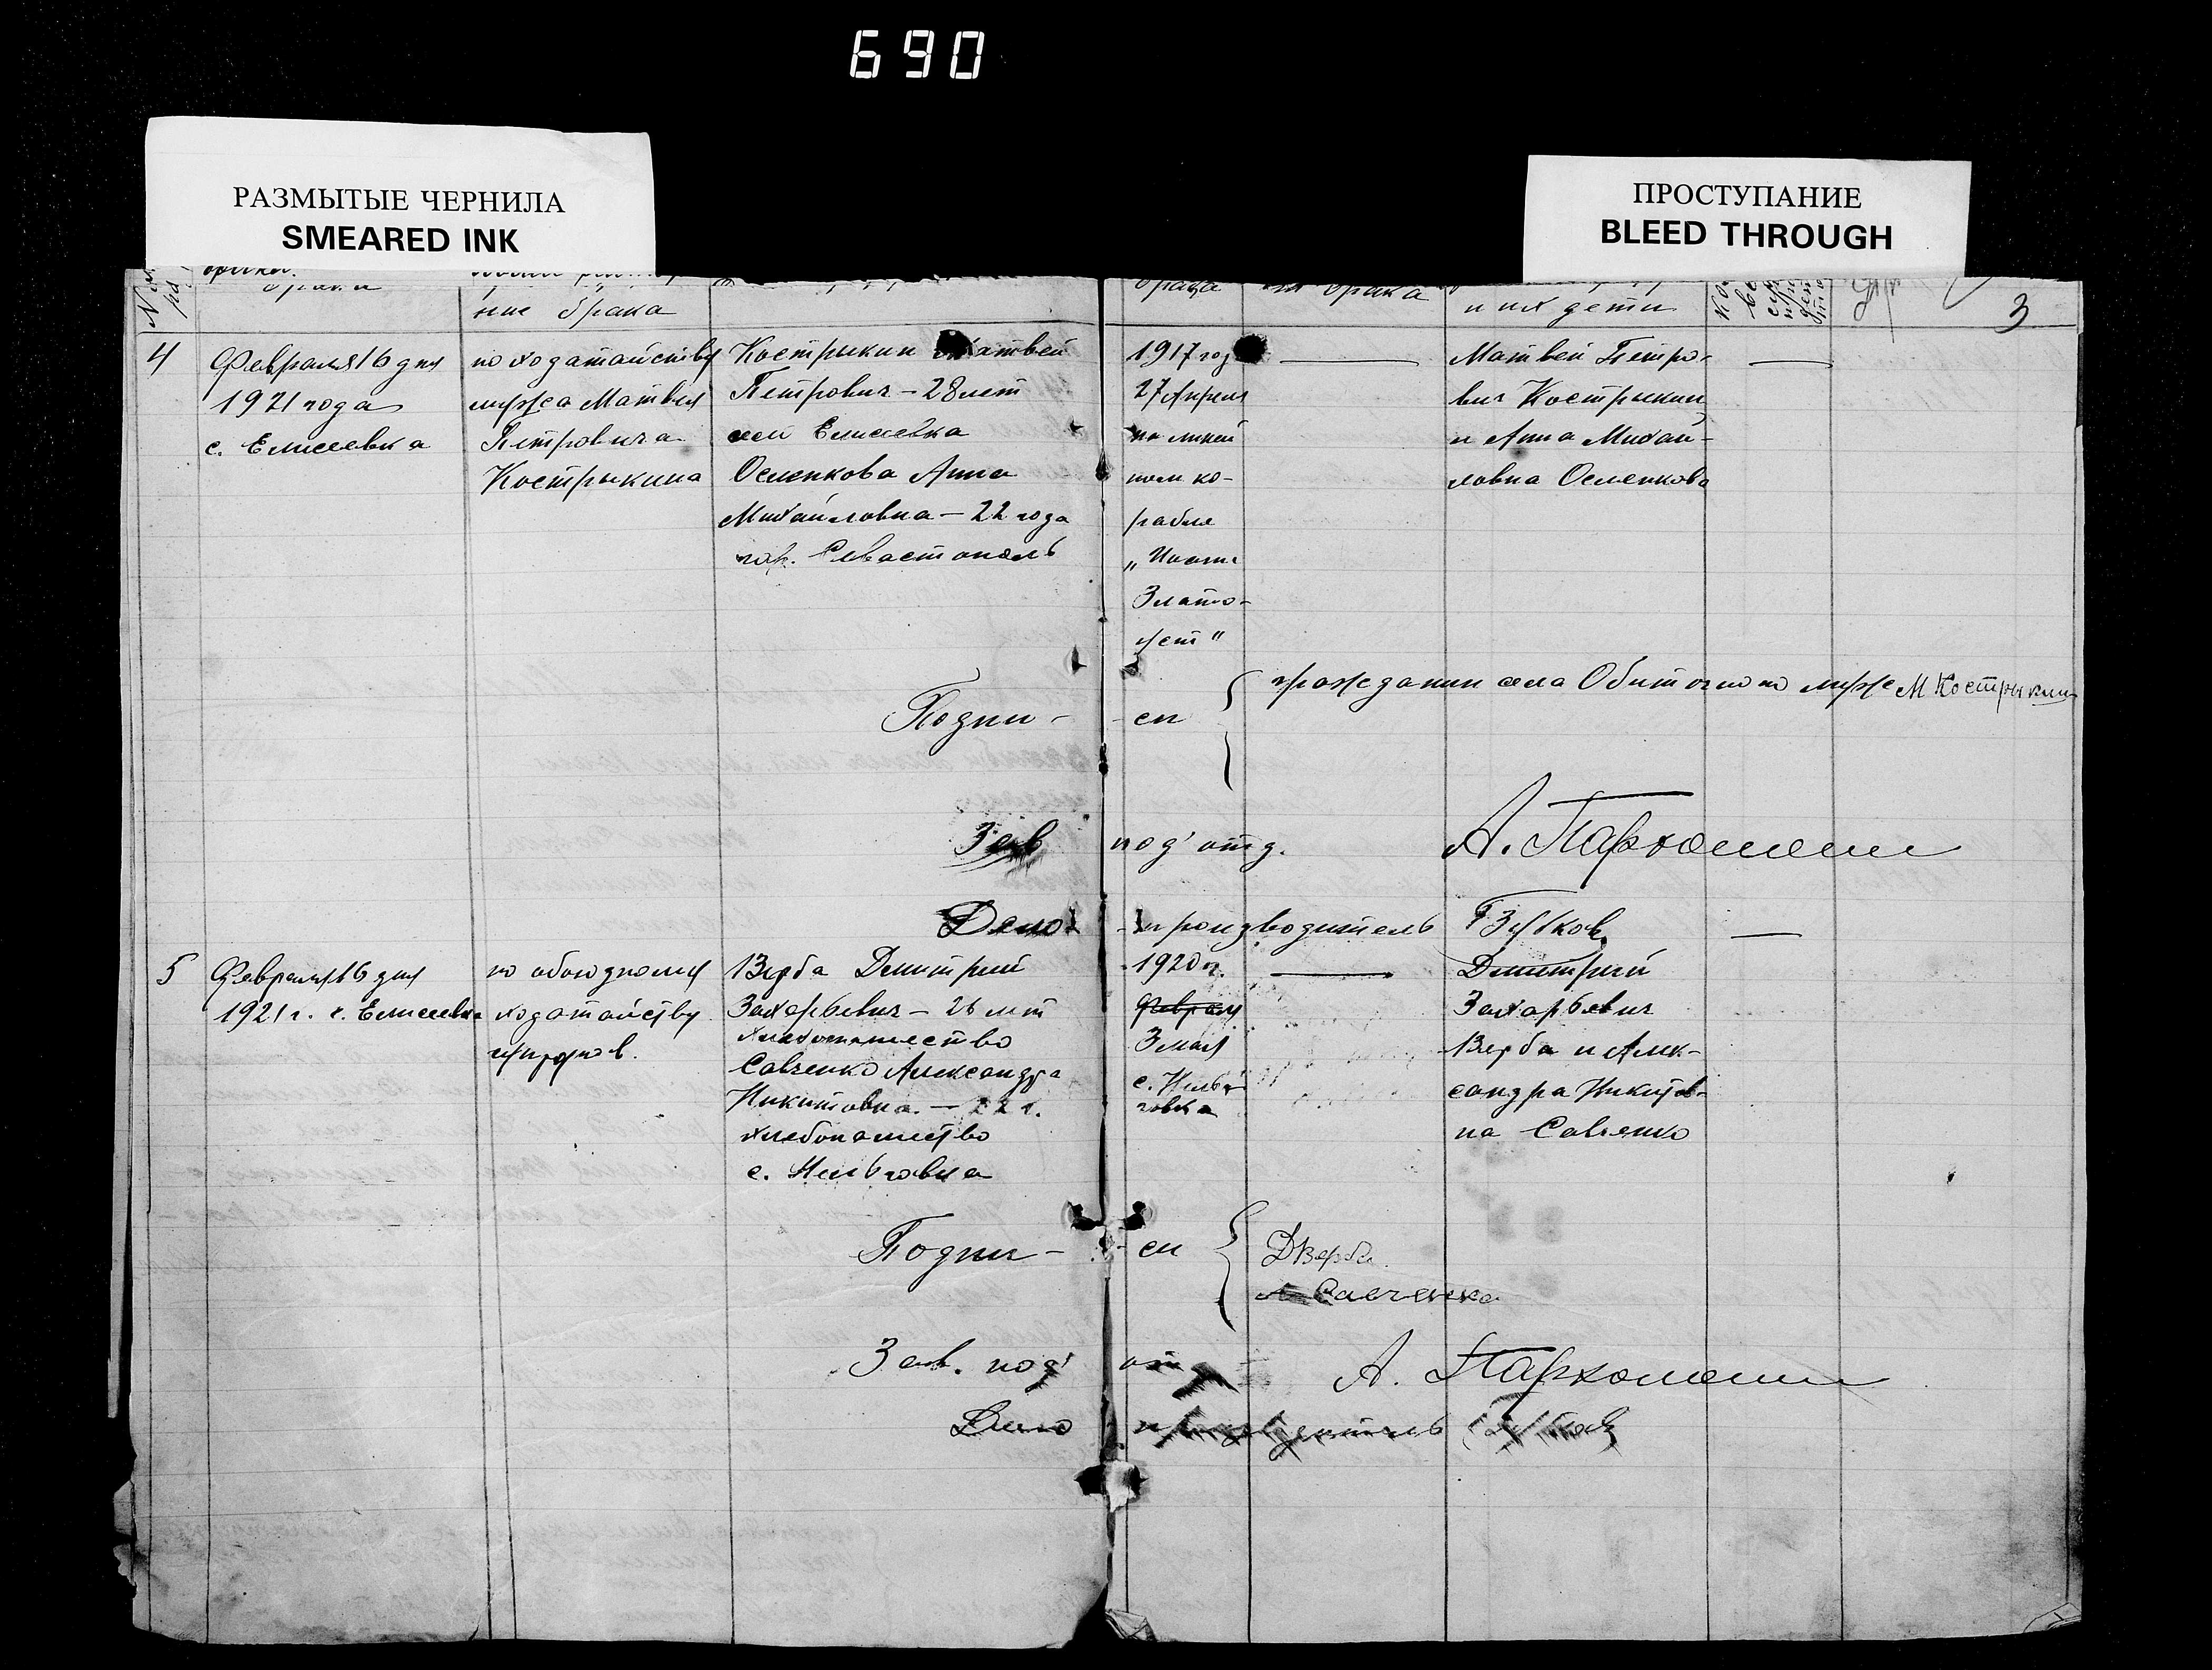 690
РАЗМЫТЫЕ ЧЕРНИЛА
SMEARED INK
ПРОСТУПАНИЕ
BLEED THROUGH
ние брака
брака
и их дети
3
4
Февраля 16 дня
1921 года
с. Елисеевка
по ходатайству
мужа Матвея
Петровича
Кострыкина
Кострыкин Матвей
Петрович — 28 лет
сел Елисеевка
Осленкова Анна
Михайловна — 22 года
гор. Севастополь
1917 год
27 Апреля
на линей
ном ко-
рабле
„Иоанн
Злато-
уст"
Матвей Петро-
вич Кострыкин
и Анна Михай-
ловна Осленкова
Подпи- -си
гражданин села Обиточного муже М Кострыкин
Зав под'отд. А. Пархоменко
Дело- -производитель Зубков
5
Февраля 16 дня
1921 г. с. Елисеевка
по обоюдному
ходатайству
супругов.
Верба Дмитрий
Захарьевич — 26 лет
хлебопашество
Савченко Александра
Никитовна — 22 г.
хлебопашество
с. Нельговка
1920 г.
Февраля
3 мая
с. Нельговка
Дмитрий
Захарьевич
Верба и Алек-
сандра Никитов-
на Савченко
Подпи- -си
Д Верба
А Савченко
Зав. под' отд А. Пархоменко
Дело производитель Зубков